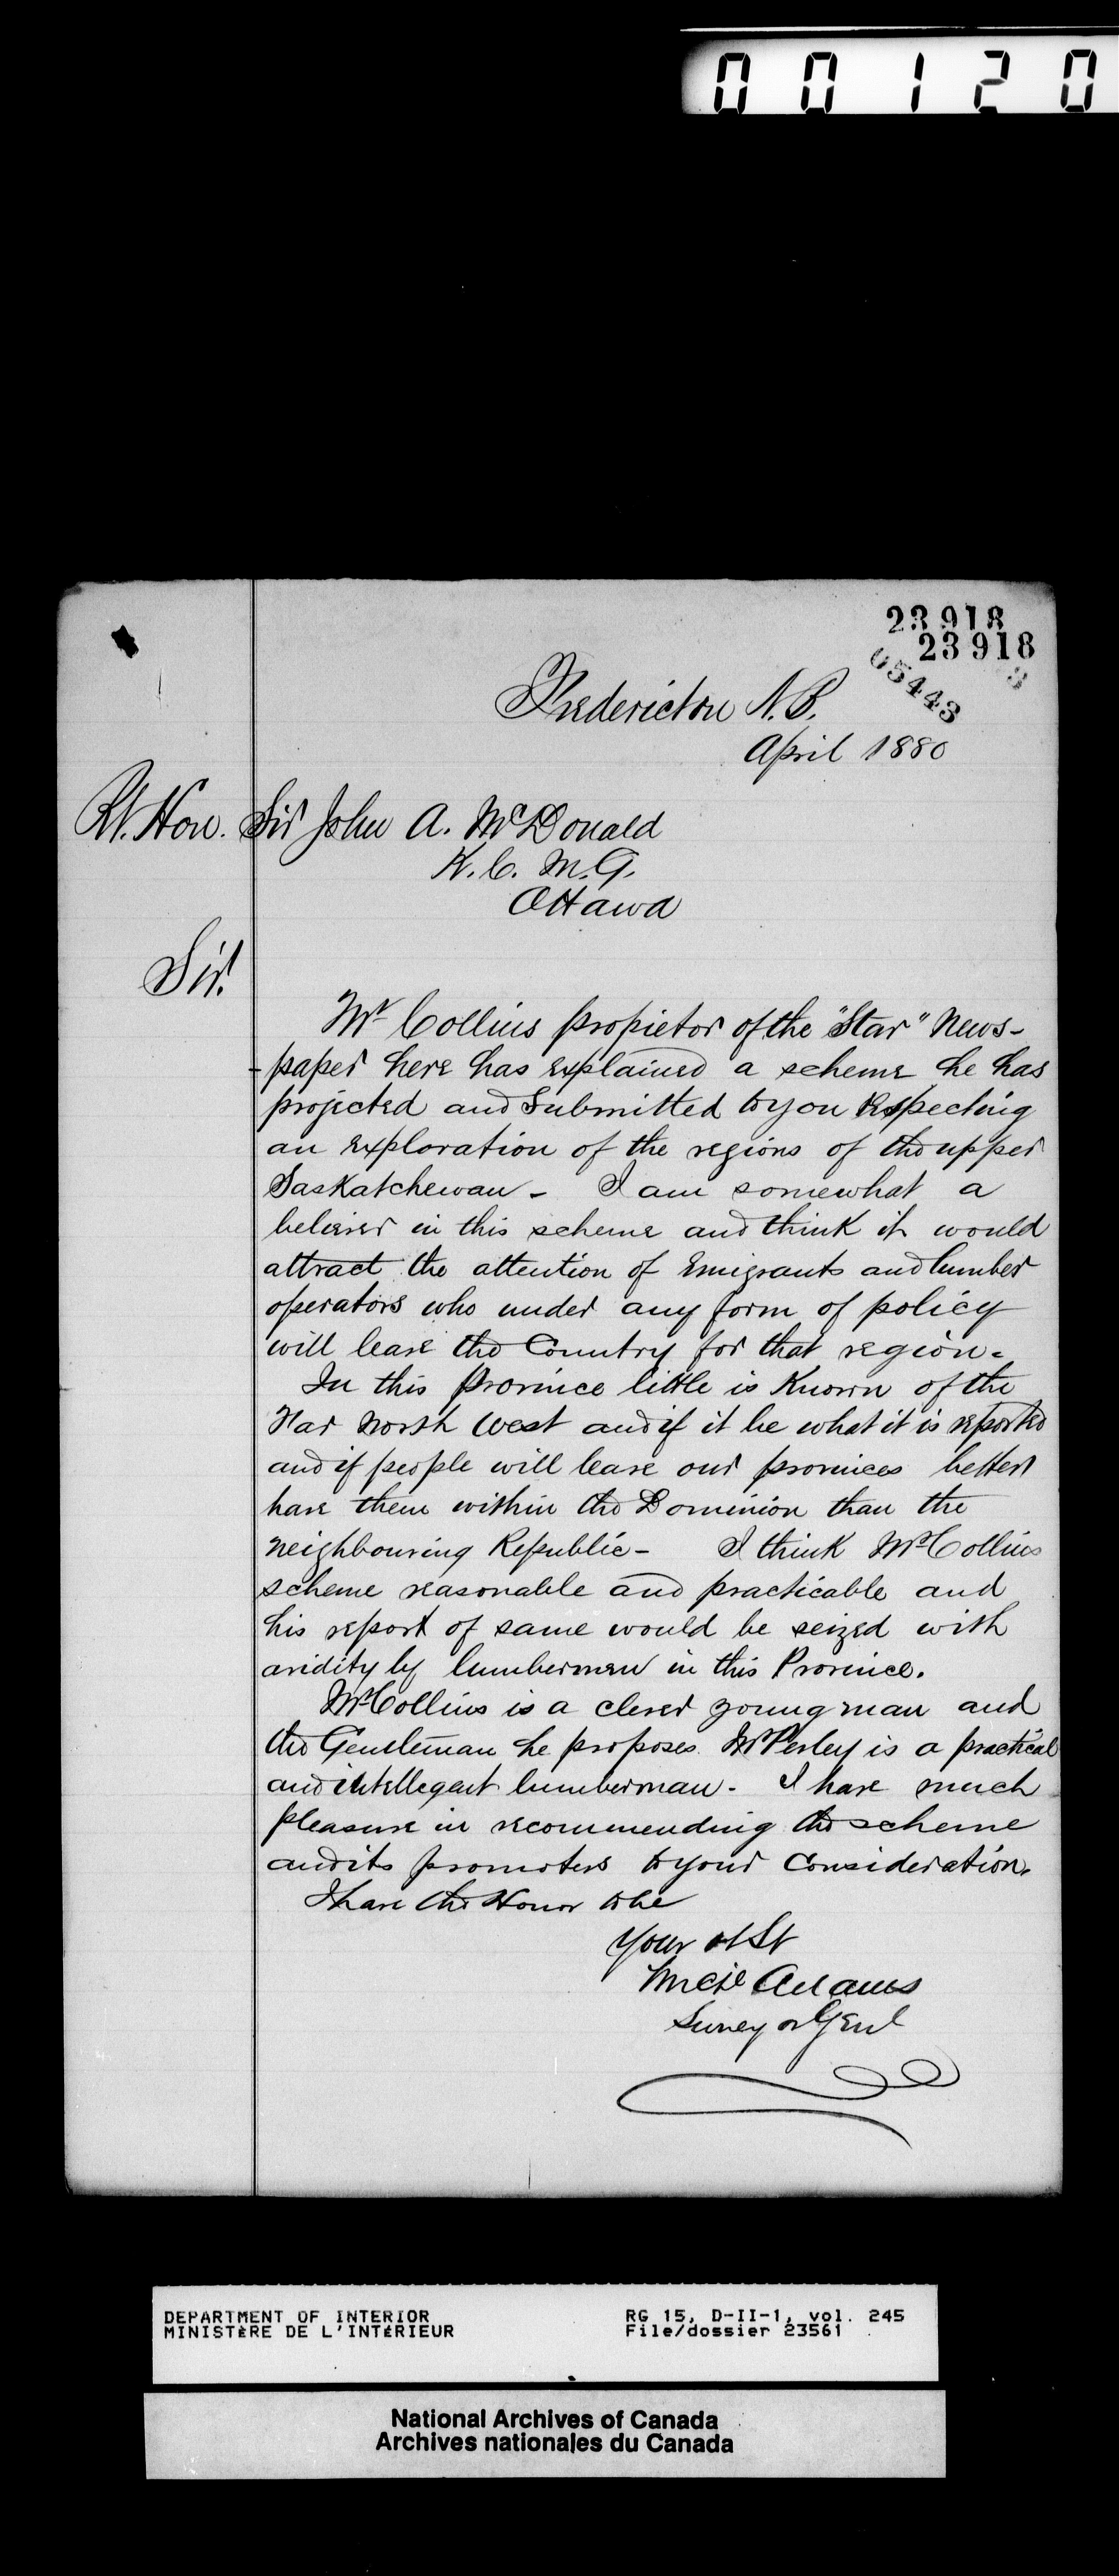 00120
23918
23918
05443
3
Fredericton N.B.
April 1880
Rt. Hon. Sir John A. McDonald
K.C.M.G.
Ottawa
Sir.
Mr Collins propietor of the "Star" News-
-paper here has explained a scheme he has
projected and Submitted to you Respecting
an exploration of the regions of the upper
Saskatchewan - I am somewhat a
believer in this scheme and think it would
attract the attention of Emigrants and lumber
operators who under any form of policy
will leave the Country for that region -
In this province little is Known of the
Far North West and if it be what it is reported
and if people will leave our provinces better
have them within the Dominion than the
neighbouring Republic - I think Mr Collins
scheme reasonable and practicable and
his report of same would be seized with
avidity by lumbermen in this Province.
Mr Collins is a clever young man and
the Gentleman he proposes Mr Perley is a practical
and intellegent lumberman - I have much
pleasure in recommending the scheme
and its promoters to your Consideration.
I have the Honor to be
Your ob St
Mcl Adams
Surveyor Genl
DEPARTMENT OF INTERIOR
MINISTÈRE DE L'INTÉRIEUR
RG 15, D-II-1, vol. 245
File/dossier 23561
National Archives of Canada
Archives nationales du Canada